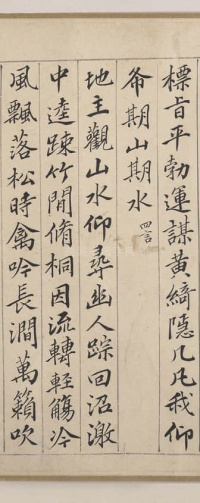 標旨平勃運謀黃綺隱几凡我仰
希期山期水 四言
地主觀山水仰尋幽人踪回沼激
中逵踈竹閒脩桐因流轉輕觴冷
風飄落松時禽吟長澗萬籟吹